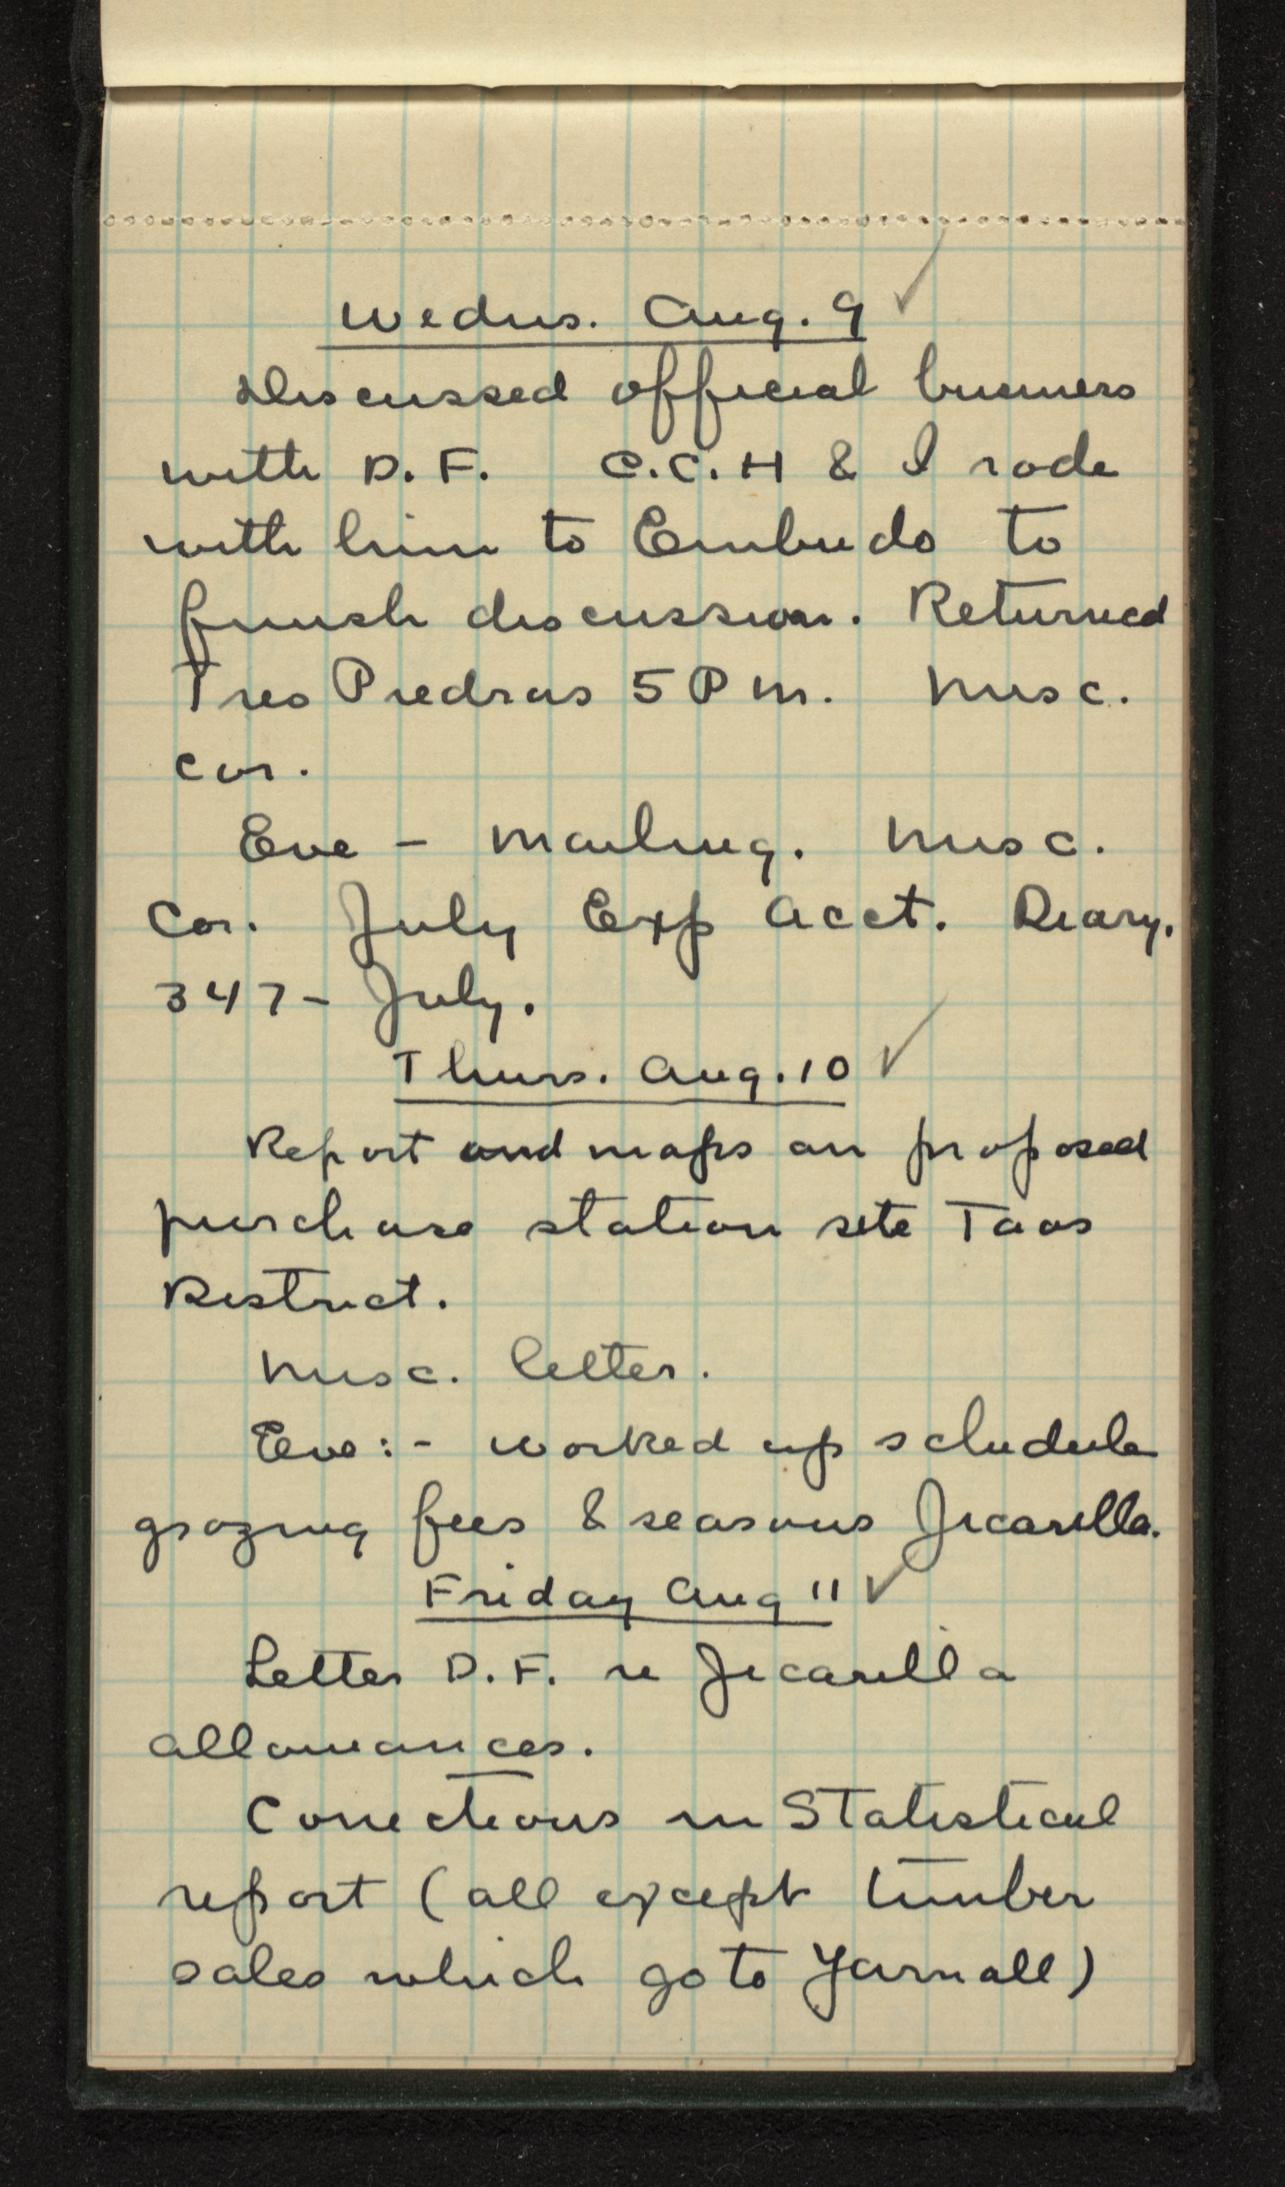 Wednes. Aug. 9 ✓
Discussed official business
with D. F. C.C.H & I rode
with him to Embudo to
finish discussion. Returned
Tres Piedras 5 P m. Misc.
cor.
Eve - mailing. Misc.
Cor. July Exp Acct. Diary.
347 - July.
Thurs. Aug. 10 ✓
Report and maps on proposed
purchase station site Taos
District.
Misc. letter.
Eve:- worked up schedule
grazing fees & seasons Jicarilla.
Friday Aug 11 ✓
Letter D. F. re Jicarilla
allowances.
Corrections in Statistical
report (all except timber
sales which go to Yarnall)